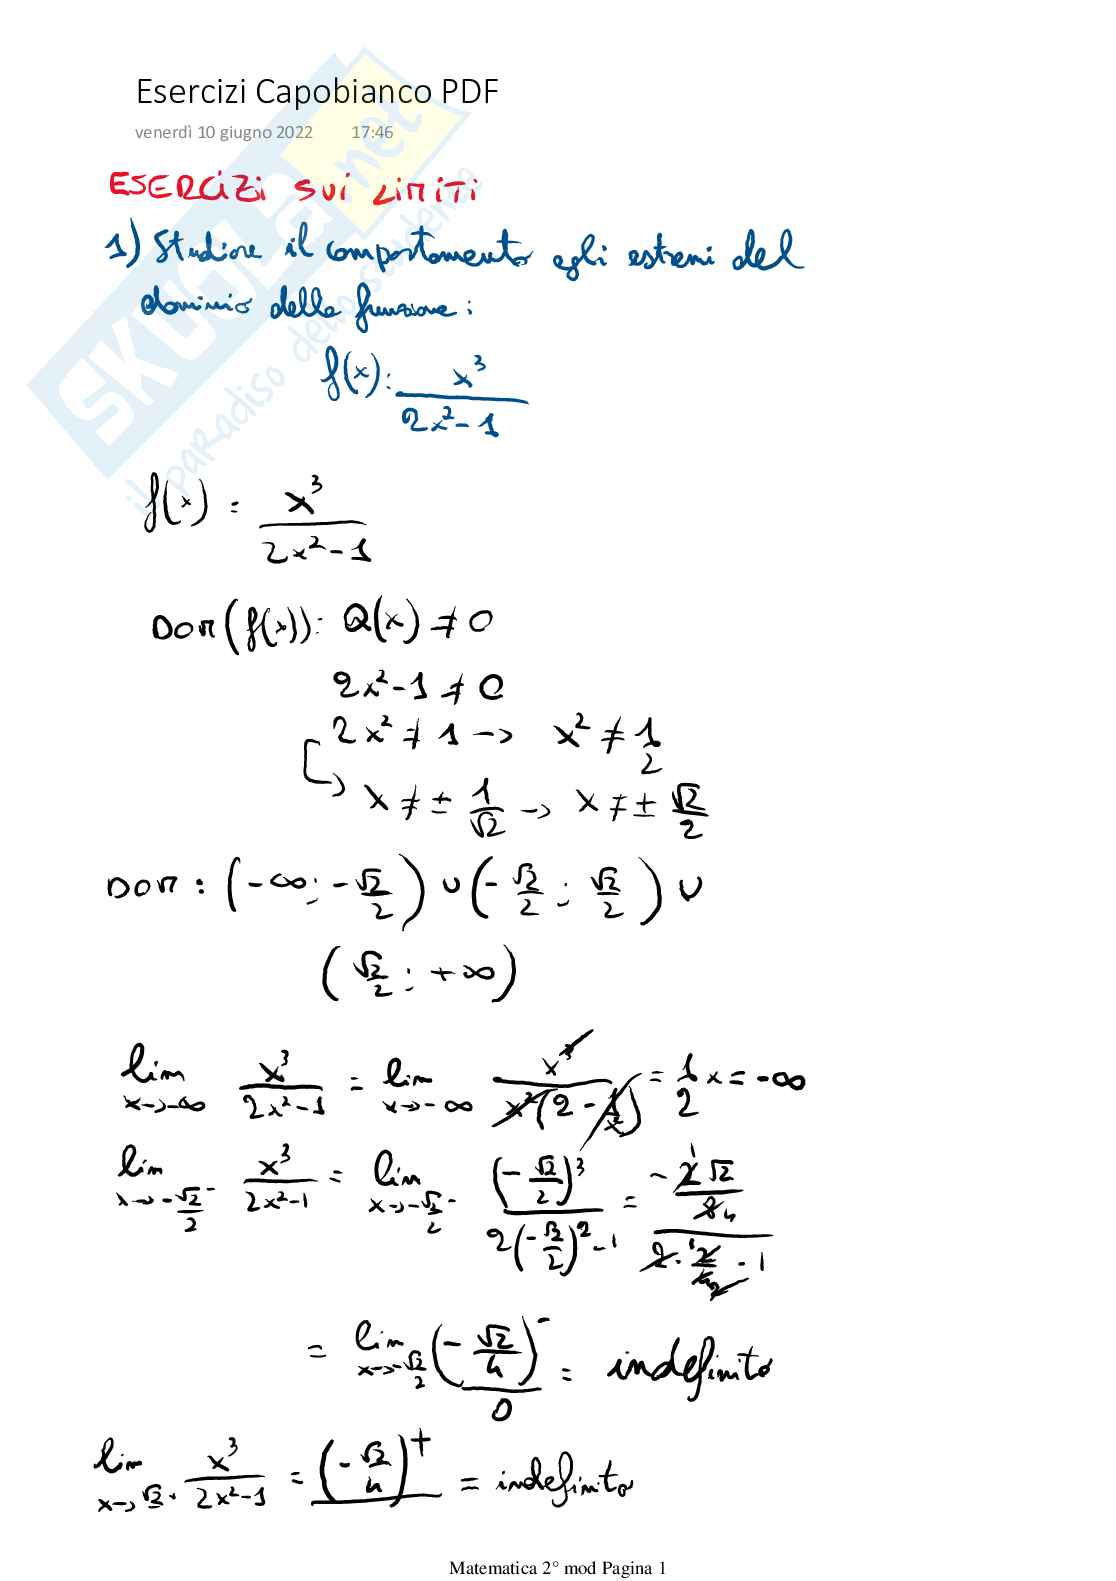 Esercizi Capobianco PDF
venerdì 10 giugno 2022 17:46
SKUOLA.net
il paradiso dello studente
ESERCIZI SUI LIMITI
1) Studiare il comportamento agli estremi del
dominio della funzione:
f(x): x³/(2x²-1)
f(x) = x³/(2x²-1)
DOM(f(x)): Q(x) ≠ 0
2x²-1 ≠ 0
2x² ≠ 1 -> x² ≠ 1/2
↳ x ≠ ± 1/√2 -> x ≠ ± √2/2
DOM: (-∞; -√2/2) ∪ (-√2/2; √2/2) ∪
(√2/2; +∞)
lim x->-∞ x³/(2x²-1) = lim x->-∞ x³/(x²(2-1/x²)) = 1/2 x = -∞
lim x->-√2/2⁻ x³/(2x²-1) = lim x->-√2/2⁻ (-√2/2)³/(2(-√2/2)²-1) = (-2√2/8)/(2·2/4-1)
= lim x->-√2/2 (-√2/4)⁻/0 = indefinito
lim x->√2/2⁺ x³/(2x²-1) = (-√2/4)⁺ = indefinito
Matematica 2° mod Pagina 1